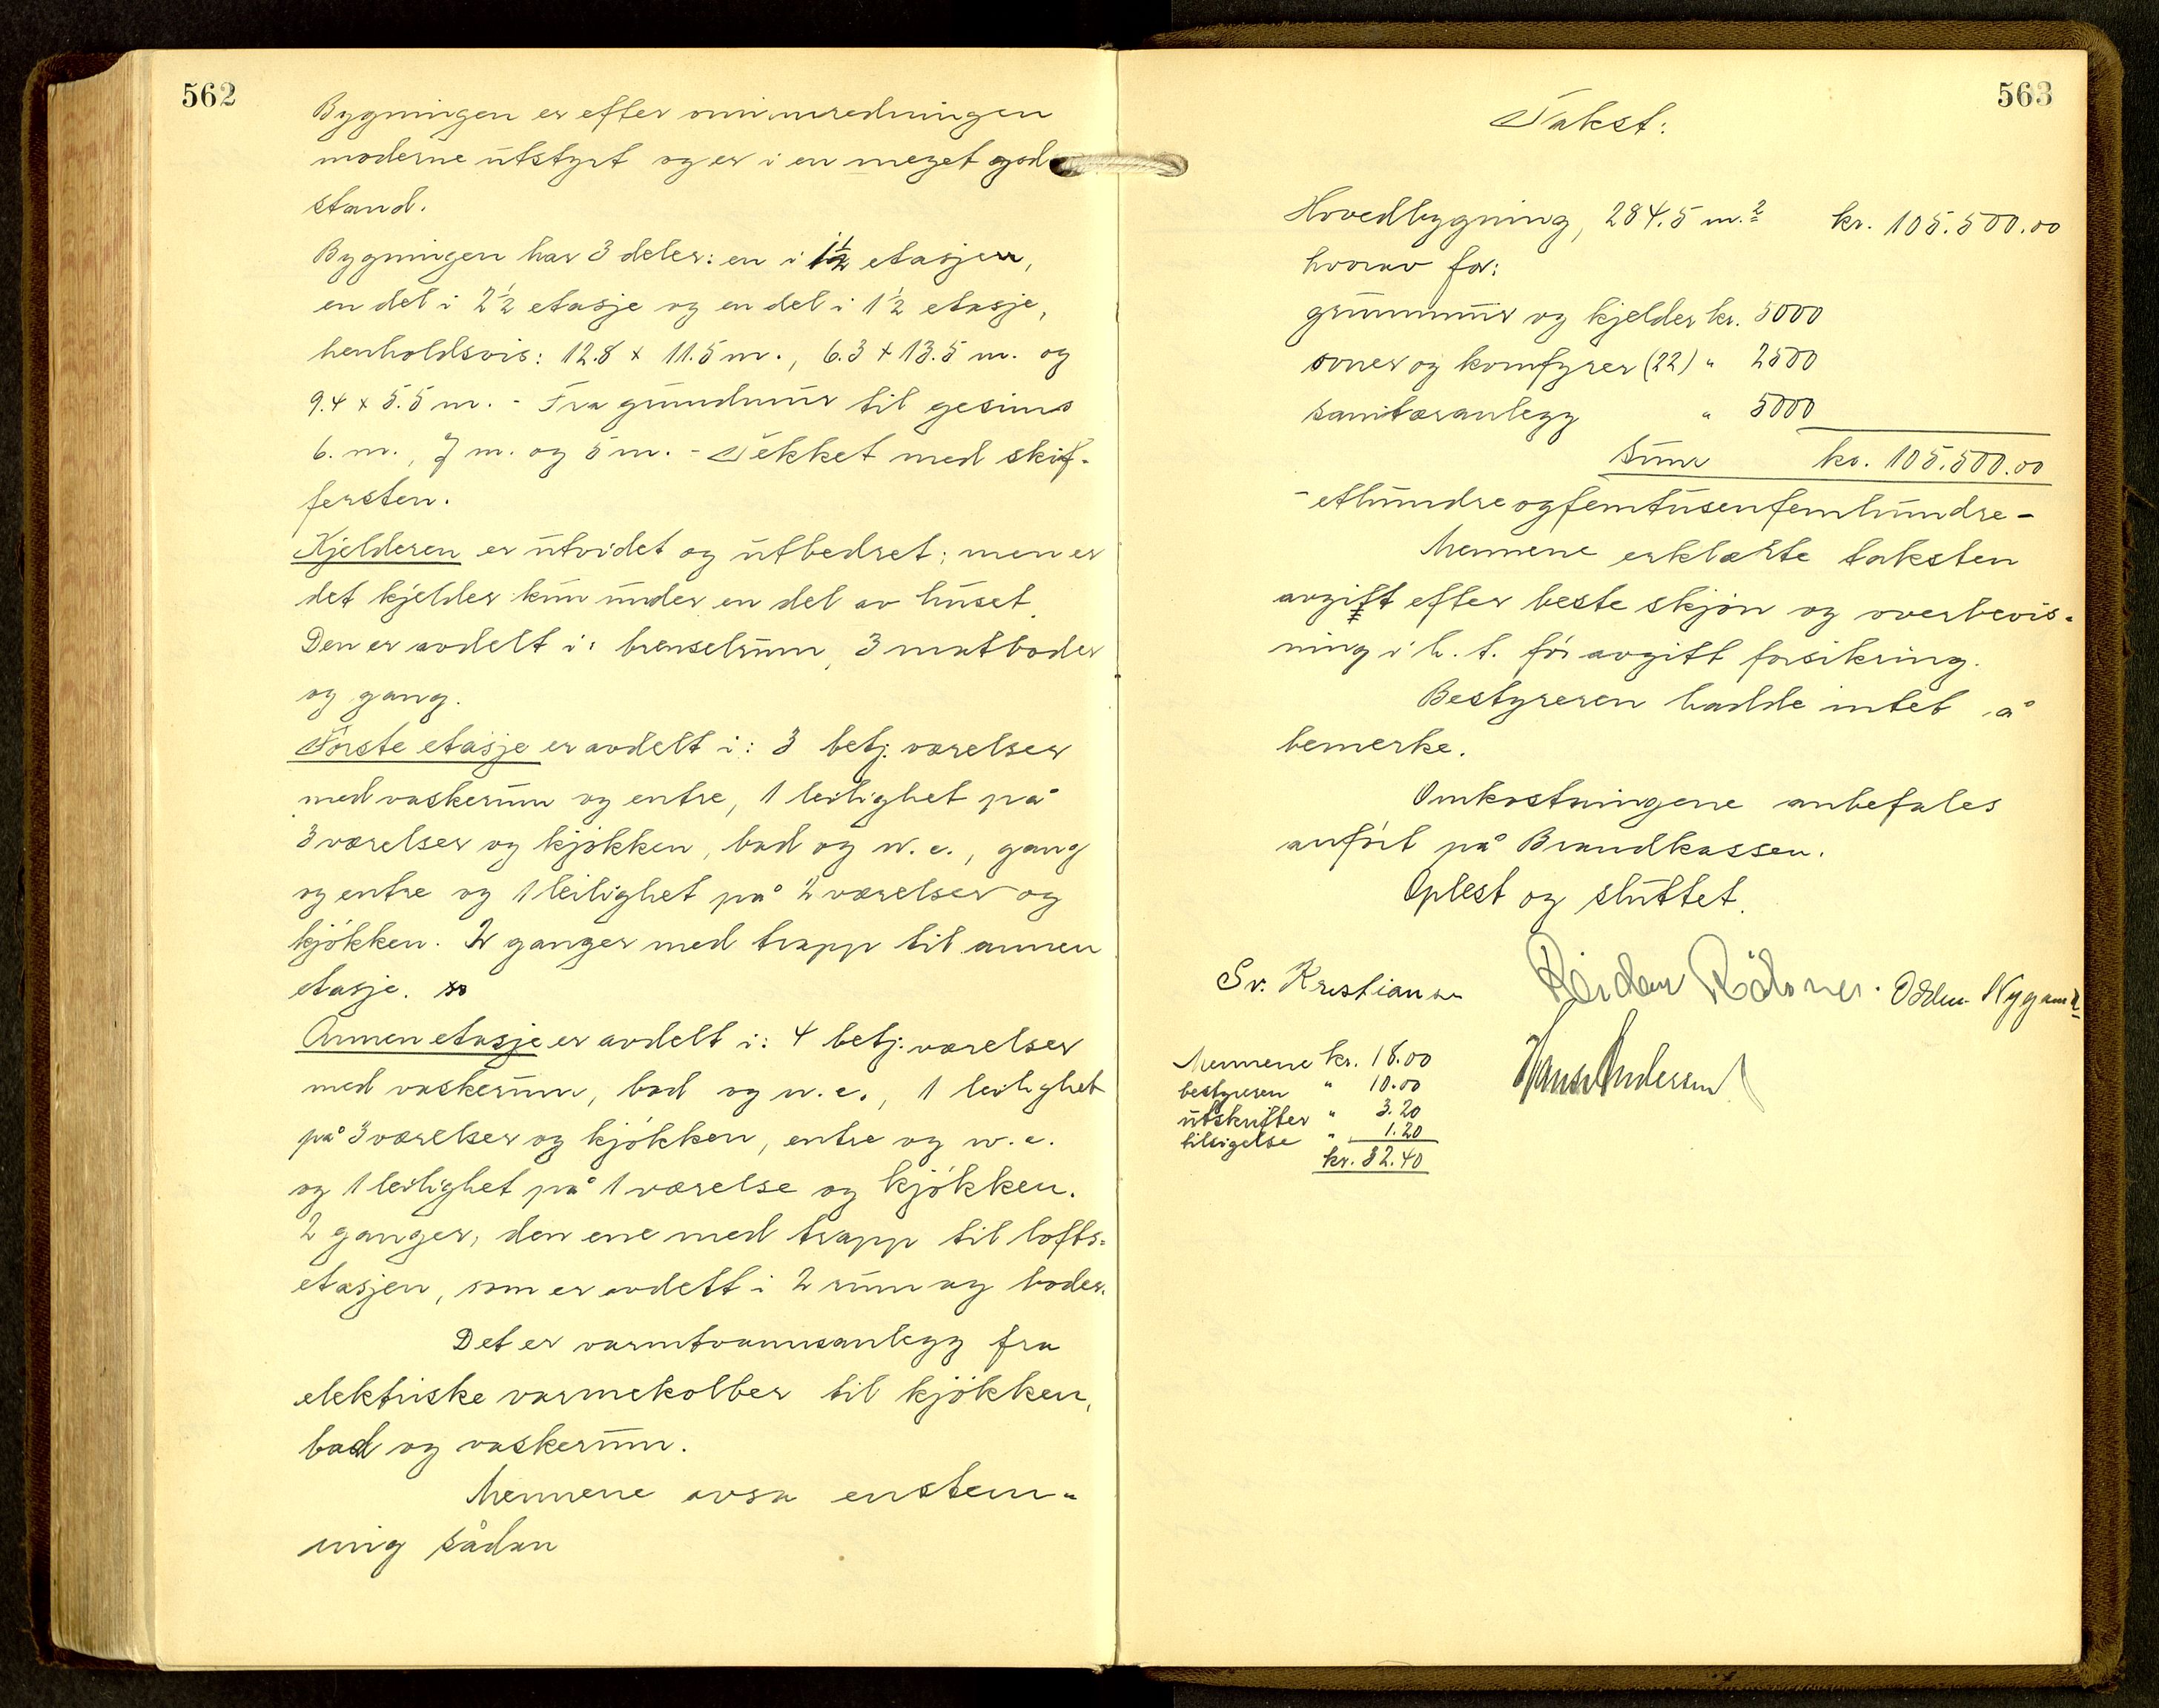 562
Bygningen er efter ominnredningen
moderne utstyrt og er i en meget god
stand.
Bygningen har 3 deler: en i 1½ etasjen,
en del i 2½ etasje og en del i 1½ etasje,
henholdsvis: 12.8 x 11.5 m., 6.3 + 13.5 m. og
9.4 x 5.5 m. - Fra grundmur til gesims
6. m., 7 m. og 5 m. - Tekket med skif-
fersten.
Kjelderen er utvidet og utbedret; men er
det kjelder kun under en del av huset.
Den er avdelt i: brenselrum, 3 matboder
og gang.
Første etasje er avdelt i: 3 betj. værelser
med vaskerum og entre, 1 leilighet på
3 værelser og kjøkken, bad og w.c., gang
og entre og 1 leilighet på 2 værelser og
kjøkken. 2 ganger med trapp til annen
etasje.
Annen etasje er avdelt i: 4 betj. værelser
med vaskerum, bad og w.c., 1 leilighet
på 3 værelser og kjøkken, entre og w.c.
og 1 leilighet på 1 værelse og kjøkken.
2 ganger, den ene med trapp til lofts-
etasjen, som er avdelt i 2 rum og boder.
Det er varmtvannsanlegg fra
elektriske varmekolber til kjøkken,
bad og vaskerum.
Mennene avsa enstem-
mig sådan
563
Takst:
Hovedbygning, 284.5 m.² kr. 105.500.00
hvorav for:
grunnmur og kjelder kr. 5000
ovner og komfyrer (22) " 2500
sanitæranlegg " 5000
Sum kr. 105.500.00
- ethundreogfemtusenfemhundre -
Mennene erklærte taksten
avgitt efter beste skjøn og overbevis-
ning i h. t. før avgitt forsikring.
Bestyreren hadde intet å
bemerke.
Omkostningene anbefales
anført på Brandkassen.
Oplest og sluttet.
Sv. Kristiansen Reidar Odden Nygaard
Hans Andersen
Mennene kr. 18.00
bestyreren " 10.00
utskrifter " 3.20
tilsigelse " 1.20
kr. 32.40